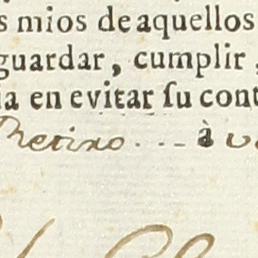 s mios de aquellos
guardar, cumplir,
ia en evitar ſu cont
Retiro. ... à